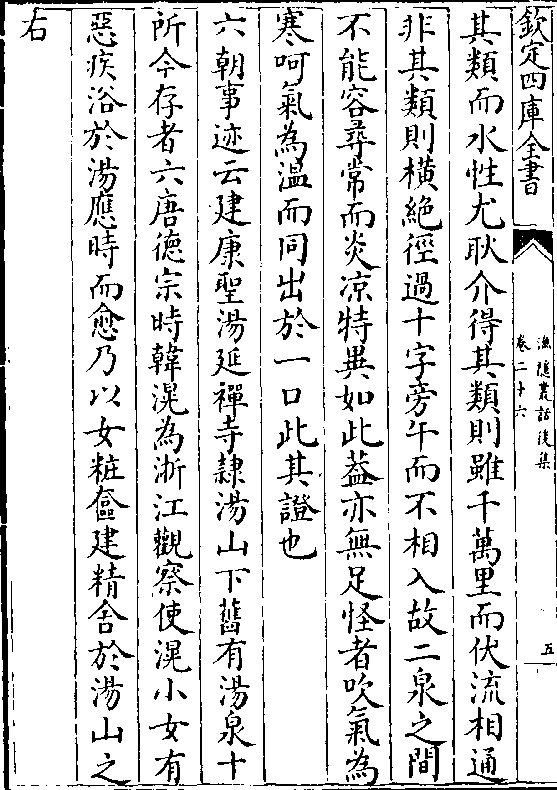 欽定四庫全書
漁隱叢話後集
卷二十六
五
其類而水性尤耿介得其類則雖千萬里而伏流相通
非其類則横絶徑過十字旁午而不相入故二泉之間
不能容尋常而炎凉特異如此葢亦無足怪者吹氣為
寒呵氣為温而同出於一口此其證也
六朝事迹云建康聖湯延禪寺隷湯山下舊有湯泉十
所今存者六唐德宗時韓滉為浙江觀察使滉小女有
惡疾浴於湯應時而愈乃以女粧奩建精舍於湯山之
右